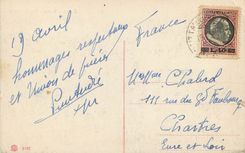 19 avril
hommages respectueux
et Union de prières
France
Mme Chabord
111 rue du Gd Faubourg
Chartres
Eure et Loir